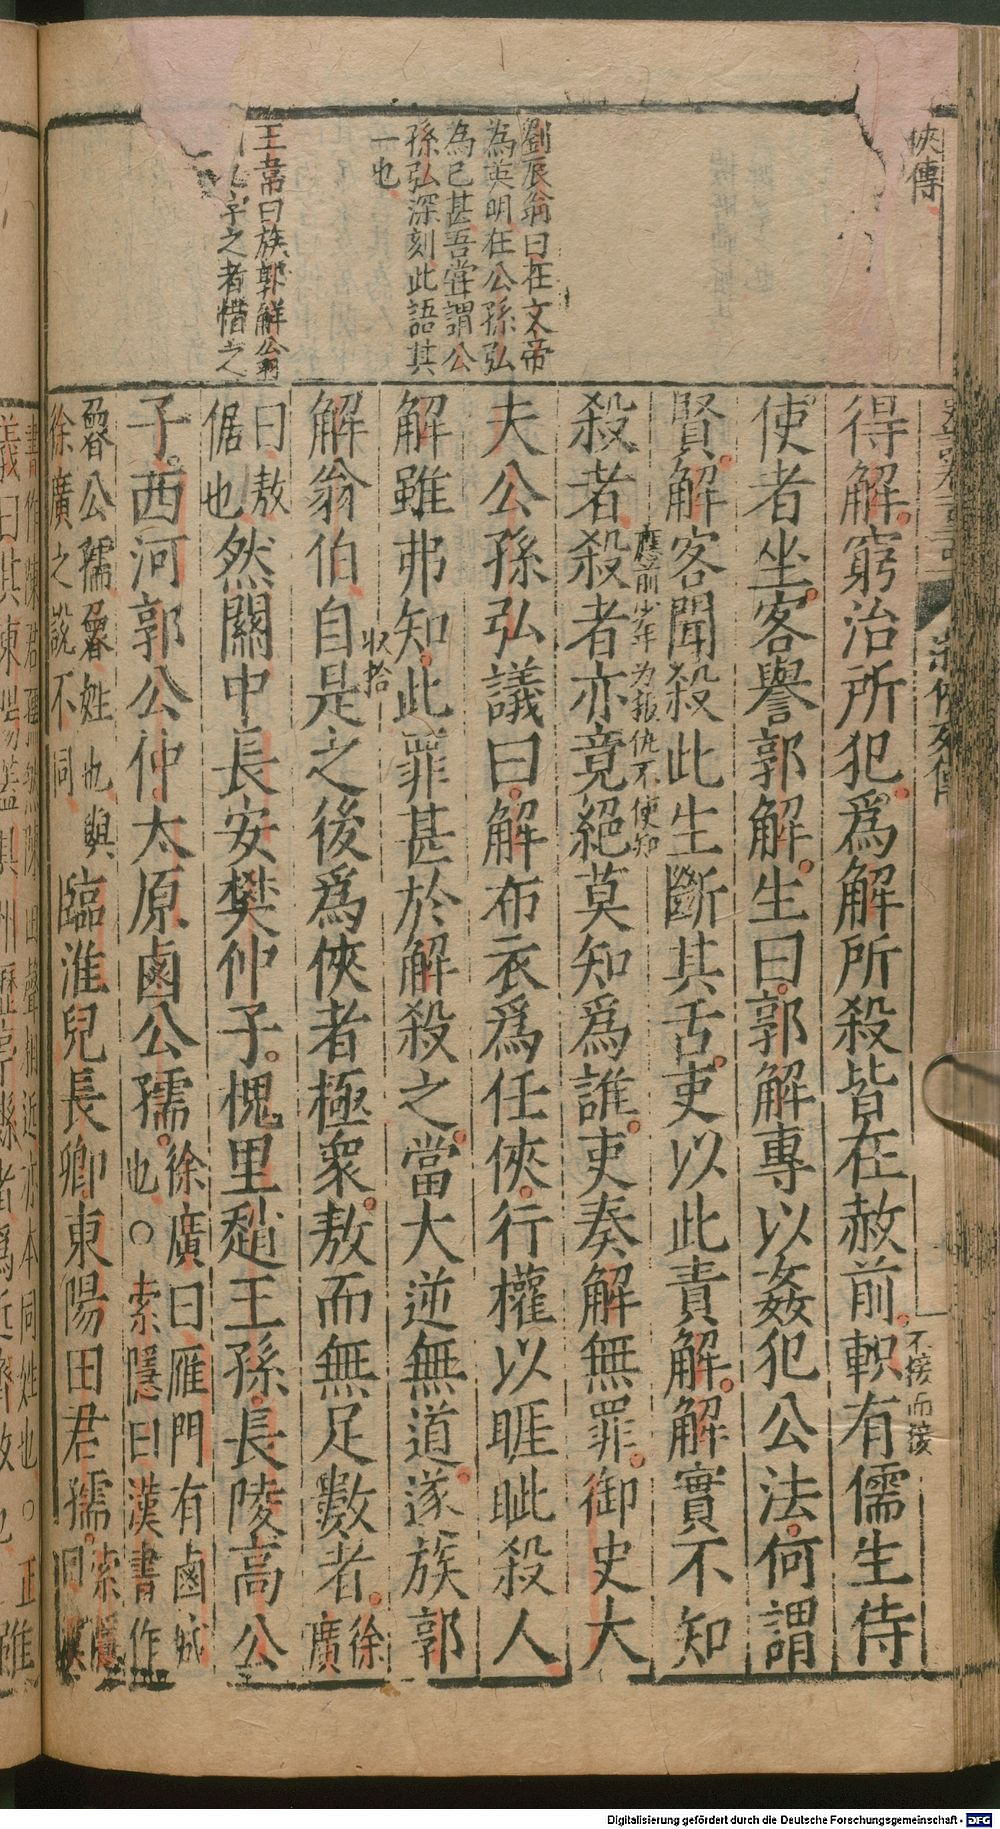 俠傳
劉辰翁曰在文帝
為英明在公孫弘
為已甚吾嘗謂公
孫弘深刻此語其
一也
王韋曰族郭解翁
字之者惜之
游俠列傳
得解窮治所犯爲解所殺皆在赦前軹有儒生侍
不接而接
使者坐客譽郭解生曰郭解專以姦犯公法何謂
賢解客聞殺此生斷其舌吏以此責解解實不知
應前少年为报仇不使知
殺者殺者亦竟絕莫知爲誰吏奏解無罪御史大
夫公孫弘議曰解布衣爲任俠行權以睚眦殺人
解雖弗知此罪甚於解殺之當大逆無道遂族郭
解翁伯自是之後爲俠者極衆敖而無足數者徐廣
收拾
曰敖倨也然關中長安樊仲子槐里趙王孫長陵高公
子西河郭公仲太原鹵公孺徐廣曰雁門有鹵城也○索隱曰漢書作
魯公孺魯姓也與徐廣之說不同臨淮兒長卿東陽田君孺索隱曰漢
書作陳君孺然陳田聲相近亦本同姓也○正
義曰其東陽蓋貝州歷亭縣者爲近齊故也
Digitalisierung gefördert durch die Deutsche Forschungsgemeinschaft - DFG